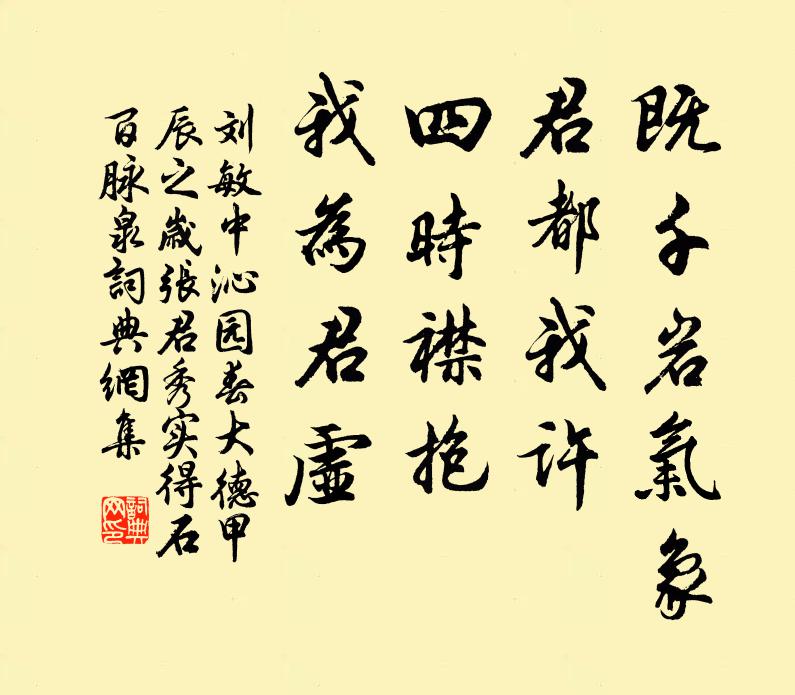 既千岩氣象
君都我許
四時襟抱
我為君虛
刘敏中沁园春大德甲
辰之歲張君秀实得石
百脉泉詞典網集
詞典网印